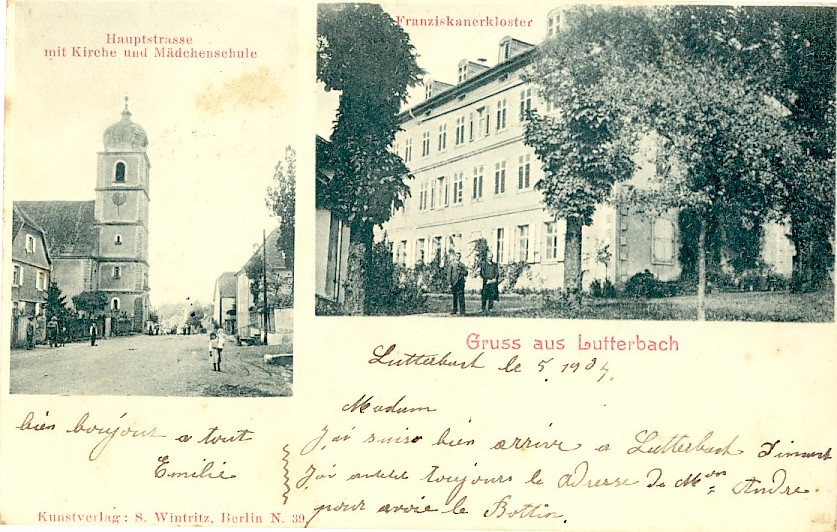 Hauptstrasse
mit Kirche und Mädchenschule
Franziskanerkloster
Gruss aus Lutterbach
Lutterbach le 5. 1904.
Madam
J'ai suiso bien arrive a Lutterbach
J'ai oublie toujours le adresse de Mon Andre
pour avoie le Bottin.
bien boujour a tout
Emilie
Kunstverlag: S. Wintritz, Berlin N. 39